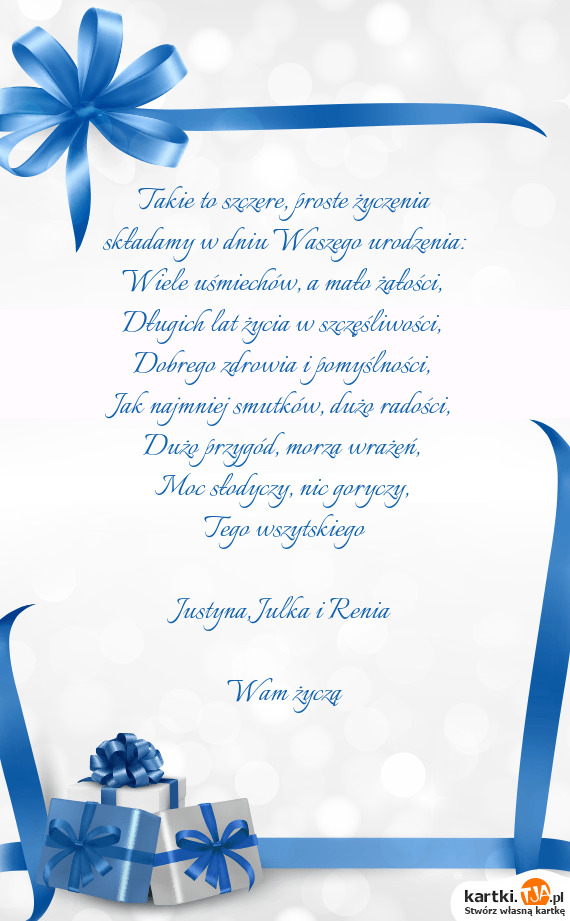 Takie to szczere, proste życzenia
składamy w dniu Waszego urodzenia:
Wiele uśmiechów, a mało żałości,
Długich lat życia w szczęśliwości,
Dobrego zdrowia i pomyślności,
Jak najmniej smutków, dużo radości,
Dużo przygód, morza wrażeń,
Moc słodyczy, nic goryczy,
Tego wszytskiego
Justyna,Julka i Renia
Wam życzą
kartki.TJA.pl
Stwórz własną kartkę